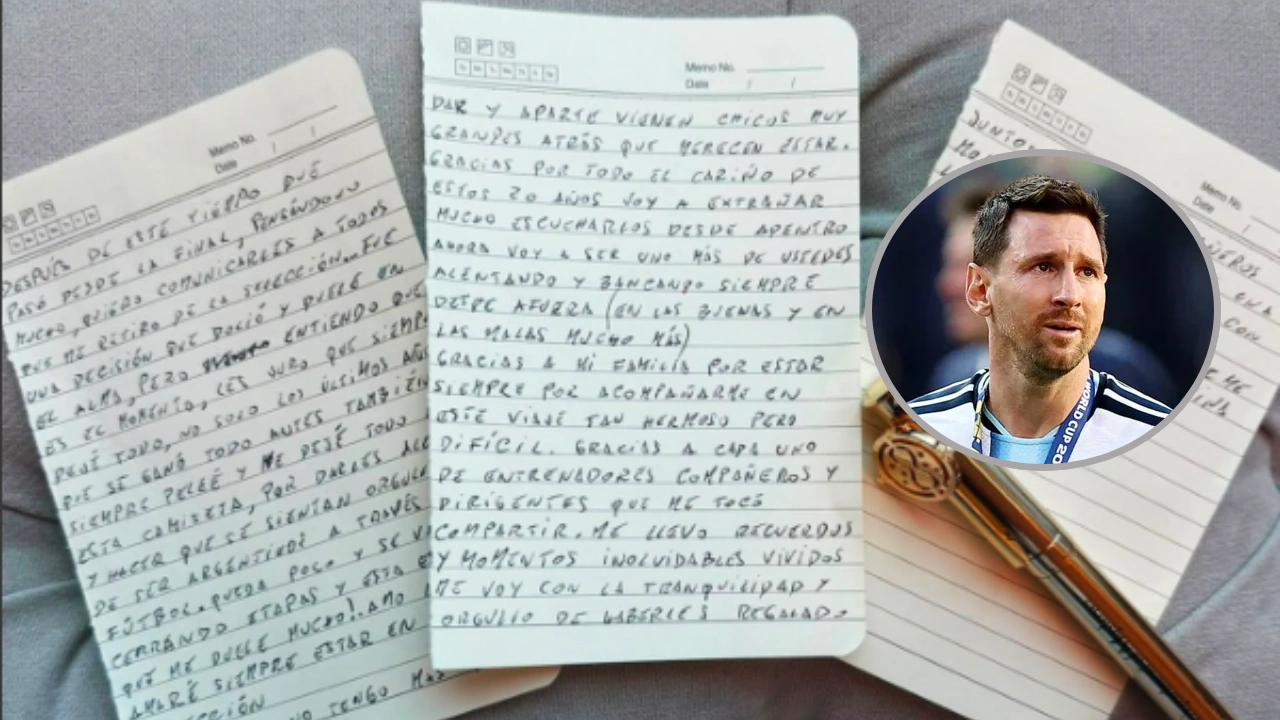 Memo No.
Date / /
DESPUÉS DE ESTE TIEMPO QUE
PASÓ DESDE LA FINAL, PENSÁNDOLO
MUCHO, QUIERO COMUNICARLES A TODOS
QUE ME RETIRO DE LA SELECCIÓN... FUE
UNA DECISIÓN QUE DOLIÓ Y DUELE EN
EL ALMA, PERO ENTIENDO QUE
ES EL MOMENTO, LES JURO QUE SIEMPRE
DEJÉ TODO, NO SOLO LOS ÚLTIMOS AÑOS
QUE SE GANÓ TODO ANTES TAMBIÉN
SIEMPRE PELEÉ Y ME DEJÉ TODO
ESTA CAMISETA, POR DARLES ALE
Y HACER QUE SE SIENTAN ORGULL
DE SER ARGENTINOS A TRAVÉS
FÚTBOL. QUEDA POCO Y SE V
CERRANDO ETAPAS Y ESTA E
QUE ME DUELE MUCHO! AMO
AMARÉ SIEMPRE ESTAR EN
CCIÓN
NO TENGO MÁS
Memo No.
Date / /
DAR Y APARTE VIENEN CHICOS MUY
GRANDES ATRÁS QUE MERECEN ESTAR.
GRACIAS POR TODO EL CARIÑO DE
ESTOS 20 AÑOS VOY A EXTRAÑAR
MUCHO ESCUCHARLOS DESDE ADENTRO
AHORA VOY A SER UNO MÁS DE USTEDES
ALENTANDO Y BANCANDO SIEMPRE
DESDE AFUERA (EN LAS BUENAS Y EN
LAS MALAS MUCHO MÁS)
GRACIAS A MI FAMILIA POR ESTAR
SIEMPRE POR ACOMPAÑARME EN
ESTE VIAJE TAN HERMOSO PERO
DIFÍCIL GRACIAS A CADA UNO
DE ENTRENADORES COMPAÑEROS Y
DIRIGENTES QUE ME TOCÓ
COMPARTIR. ME LLEVO RECUERDOS
Y MOMENTOS INOLVIDABLES VIVIDOS
ME VOY CON LA TRANQUILIDAD Y
ORGULLO DE HABERLES REGALADO
Memo No.
Date /
JUNTO
MO
AÑEROS
CON
WORLD CUP 20